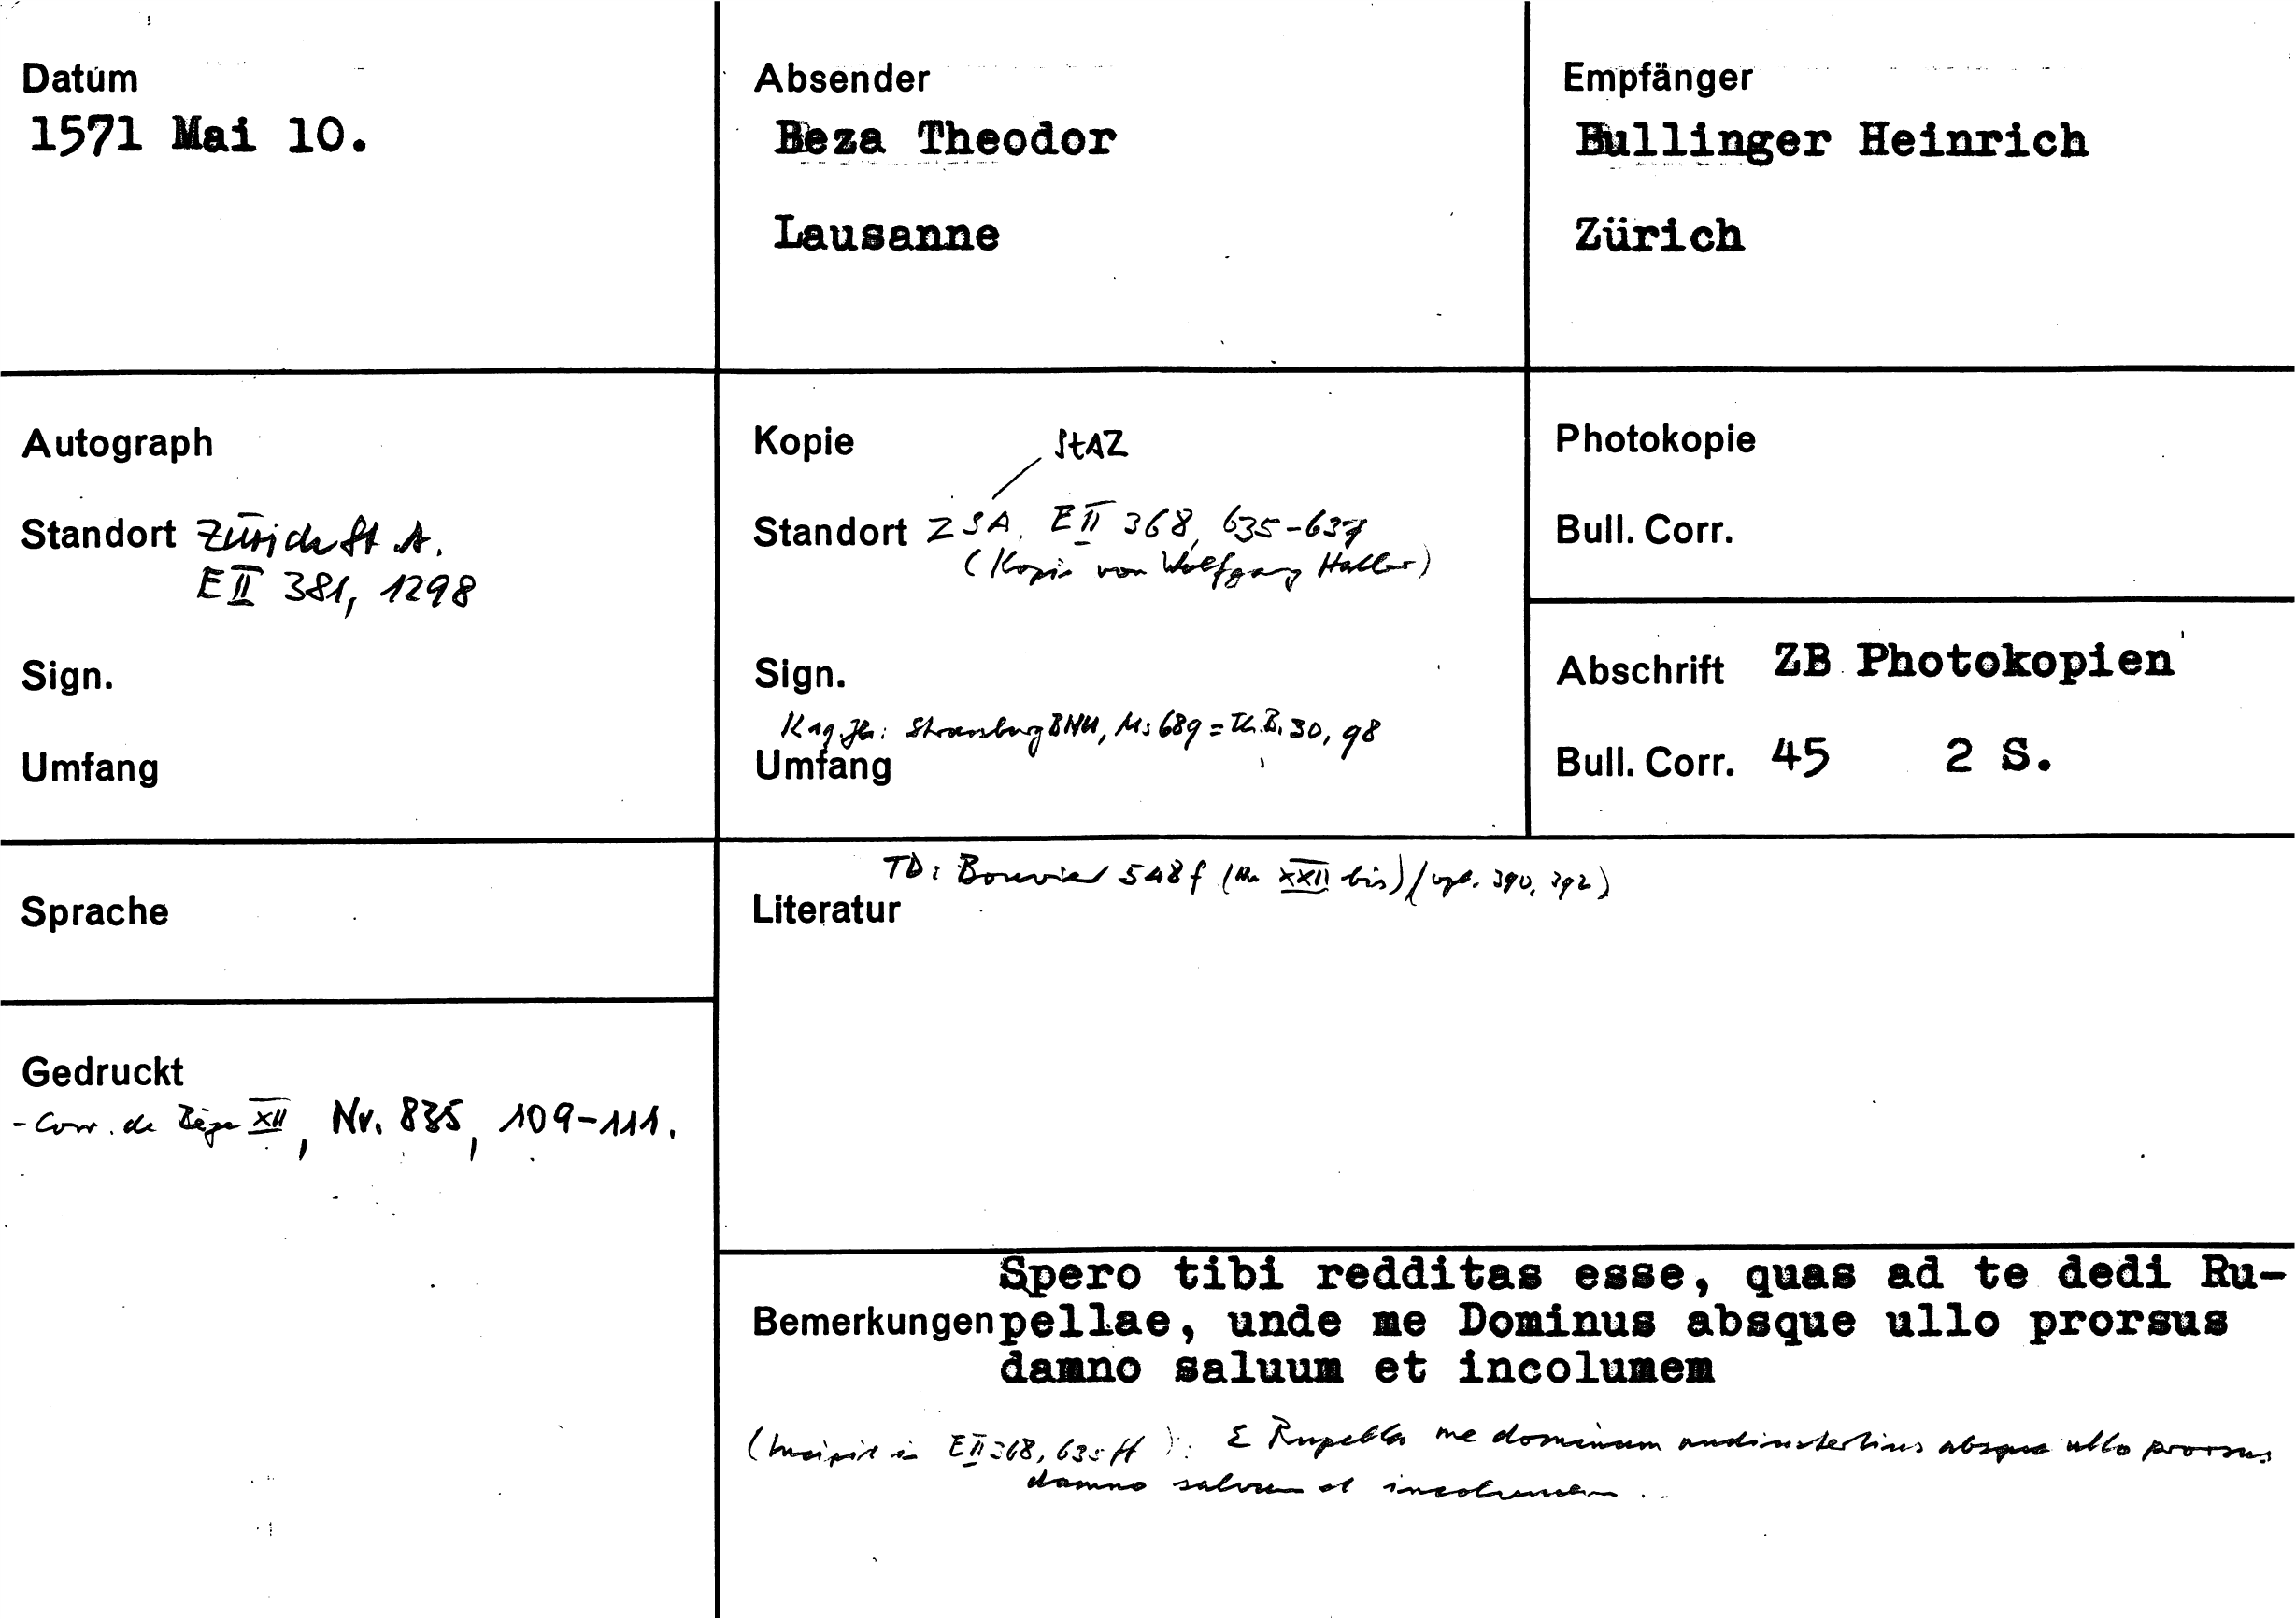 Datum
1571 Mai 10.
Absender
Beza Theodor
Lausanne
Empfänger
Bullinger Heinrich
Zürich
Autograph
Standort Zürich St. A.
E II 381, 1298
Sign.
Umfang
Kopie StAZ
Standort ZSA, E II 368, 635-637
(Kopie von Wolfgang Haller)
Sign.
Strassburg BNU, Ms 689 = Th.B. 30, 98
Umfang
Photokopie
Bull. Corr.
Abschrift ZB Photokopien
Bull. Corr. 45 2 S.
Sprache
TD: Bouvier 548f (Nr XXII bis) (vgl. 390, 392)
Literatur
Gedruckt
- Corr. de Bèze XII, Nr. 835, 109-111.
Spero tibi redditas esse, quas ad te dedi Ru-
Bemerkungen pellae, unde me Dominus absque ullo prorsus
damno saluum et incolumem
(Incipit in E II 368, 635 ff): E Rupella me dominum nudiustertius absque ullo prorsus
damno salvum et incolumem..